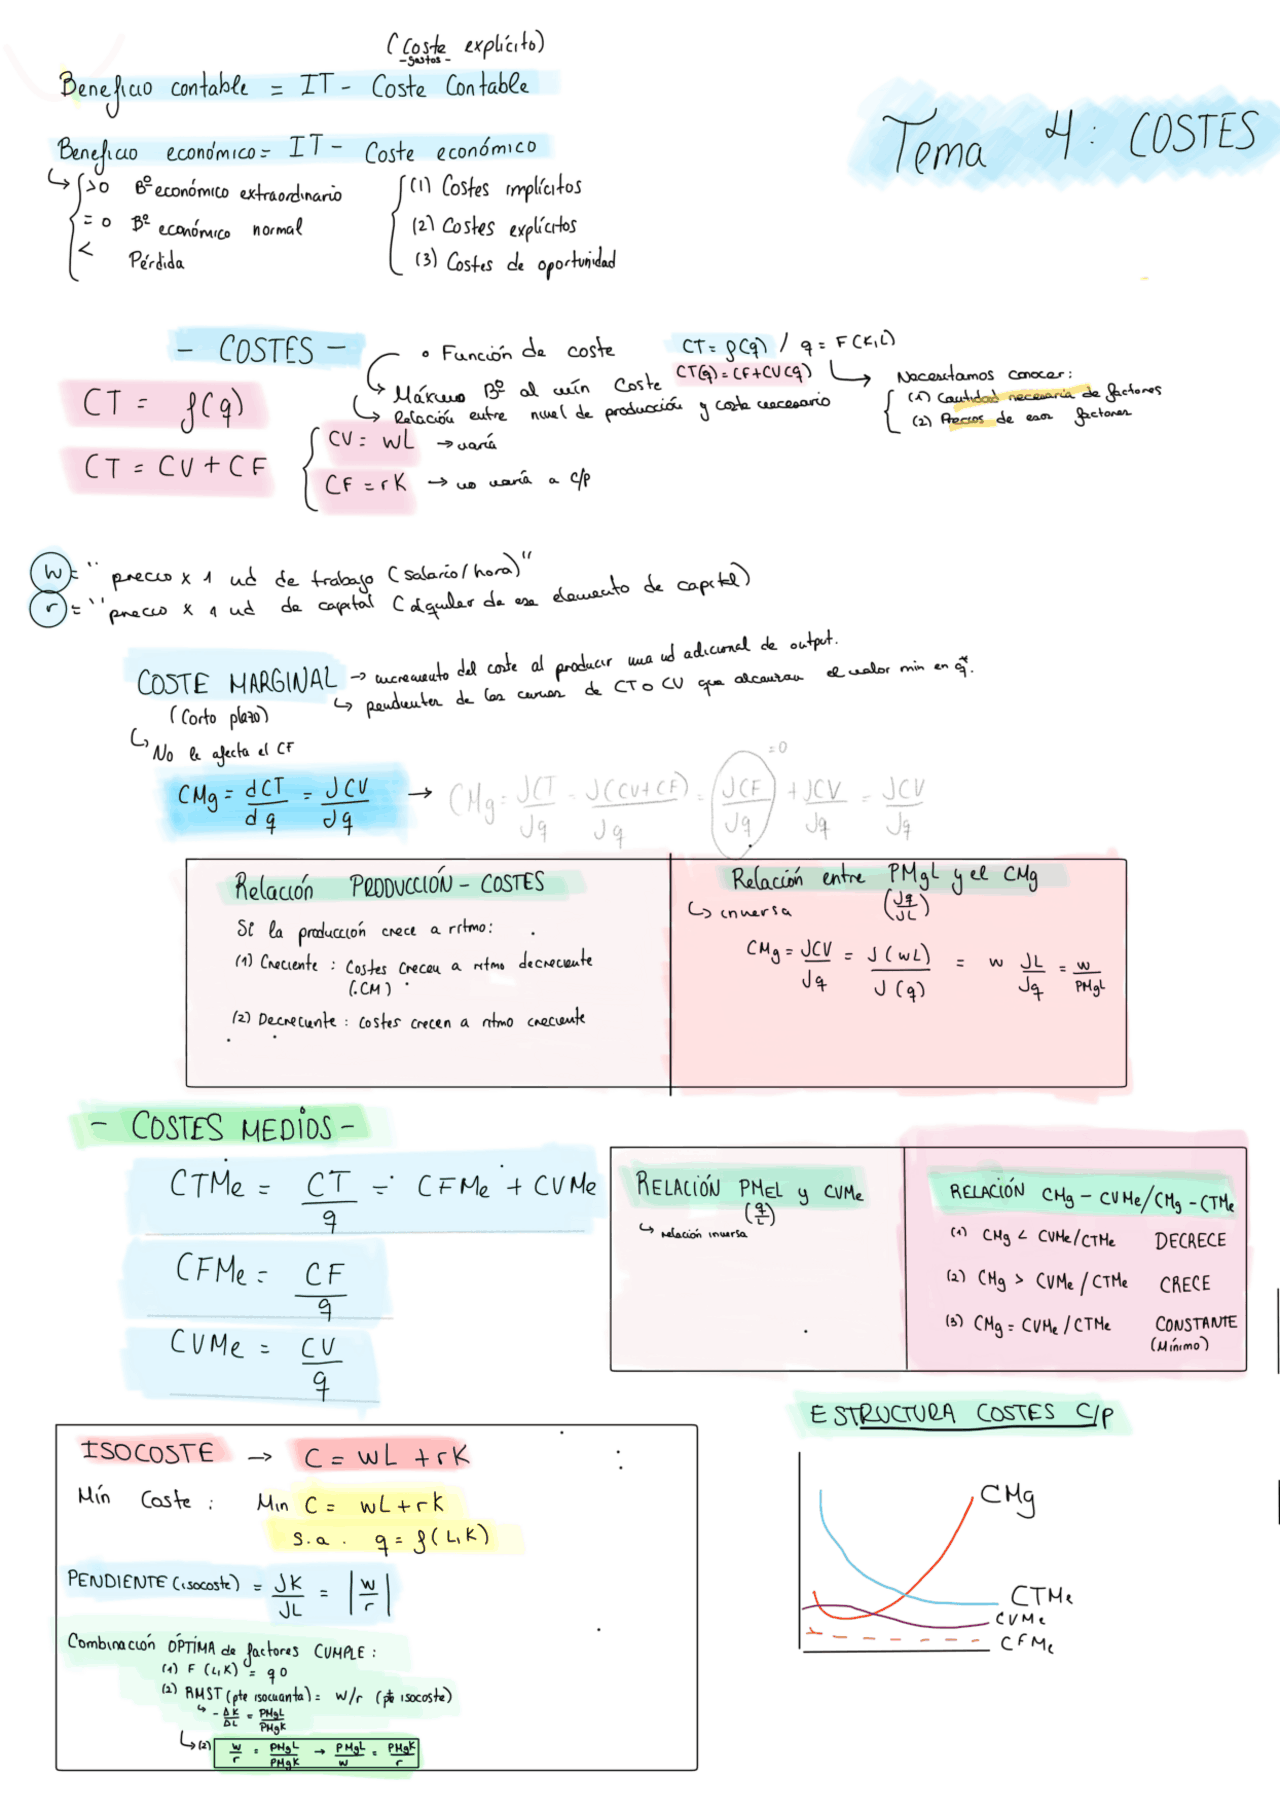 (Coste explícito)
-gastos-
Beneficio contable = IT - Coste Contable
Tema 4: COSTES
Beneficio económico = IT - Coste económico
↳ >0 Bº económico extraordinario
= 0 Bº económico normal
< Pérdida
(1) Costes implícitos
(2) Costes explícitos
(3) Costes de oportunidad
- COSTES -
• Función de coste CT = f(q) / q = F(K,L)
↳ Máximo Bº al mín Coste CT(q) = CF+CV(q)
↳ Relación entre nivel de producción y coste necesario
↳ Necesitamos conocer:
(1) Cantidad necesaria de factores
(2) Precios de esos factores
CT = f(q)
CT = CV + CF
CV = wL → varía
CF = rK → no varía a c/p
w = " precio x 1 ud de trabajo (salario/hora)"
r = " precio x 1 ud de capital (alquiler de ese elemento de capital)
COSTE MARGINAL → incremento del coste al producir una ud adicional de output.
↳ pendientes de las curvas de CT o CV que alcanzan el valor min en q*.
(Corto plazo)
↳ No le afecta el CF
CMg = dCT/dq = JCV/Jq → CMg = JCT/Jq = J(CV+CF)/Jq = JCF/Jq + JCV/Jq = JCV/Jq
=0
Relación PRODUCCIÓN - COSTES
Si la producción crece a ritmo:
(1) Creciente : Costes crecen a ritmo decreciente
(.CM)
(2) Decreciente : costes crecen a ritmo creciente
Relación entre PMgL y el CMg
↳ inversa (Jq/JL)
CMg = JCV/Jq = J(wL)/J(q) = w JL/Jq = w/PMgL
- COSTES MEDIOS -
CTMe = CT/q = CFMe + CVMe
CFMe = CF/q
CVMe = CV/q
RELACIÓN PMEL y CVMe
(q/L)
↳ relación inversa
RELACIÓN CMg - CVMe/CMg - CTMe
(1) CMg < CVMe/CTMe DECRECE
(2) CMg > CVMe/CTMe CRECE
(3) CMg = CVMe/CTMe CONSTANTE
(Mínimo)
ISOCOSTE → C = wL + rK
Mín Coste : Min C = wL + rK
s.a. q = f(L,K)
PENDIENTE (isocoste) = JK/JL = |w/r|
Combinación ÓPTIMA de factores CUMPLE :
(1) F(L,K) = q0
(2) RMST (pte isocuanta) = w/r (pte isocoste)
↳ - ΔK/ΔL = PMgL/PMgK
↳ (2) w/r = PMgL/PMgK → PMgL/w = PMgK/r
ESTRUCTURA COSTES C/P
CMg
CTMe
CVMe
CFMe